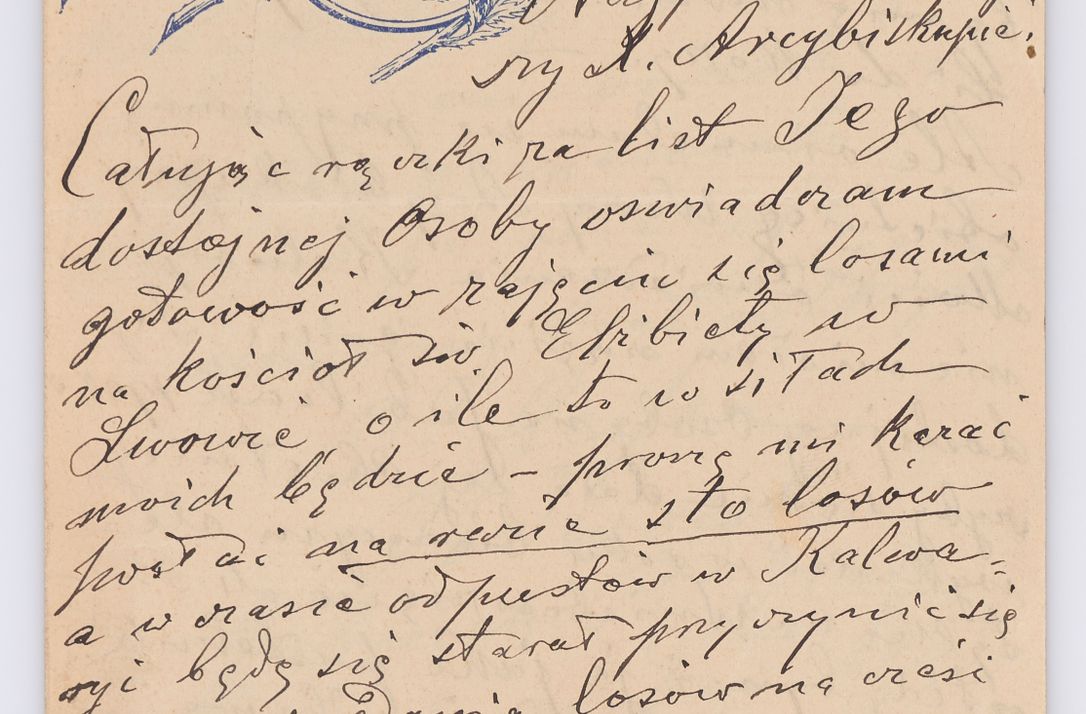 szy X. Arcybiskupie!
Całując rączki za list Jego
dostojnej Osoby oswiadczam
gotowość w zajęciu się losami
na kościoł św Elżbiety w
Lwowie o ile to w siłach
moich będzie – proszę mi kazać
posłać na razie sto losów
a w czasie odpustów w Kalwa-
ryi będę się starał przyczynić się
losów na cześć